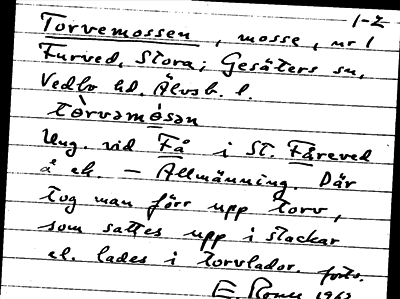 1-2
Torvemossen, mosse, nr 1
Furved, Stora; Gesäters sn,
Vedbo hd. Älvsb. l.
tòrvəmósən
Ung. vid Få i St. Fåreved
å ek. — Allmänning. Där
tog man förr upp torv,
som sattes upp i stackar
el. lades i torvlador. forts.
E. 1962